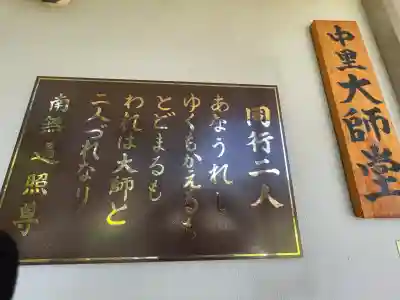 中里大師堂
同行二人
あなうれし
ゆくもかえるも
とどまるも
われは大師と
二人づれなり
南無遍照尊